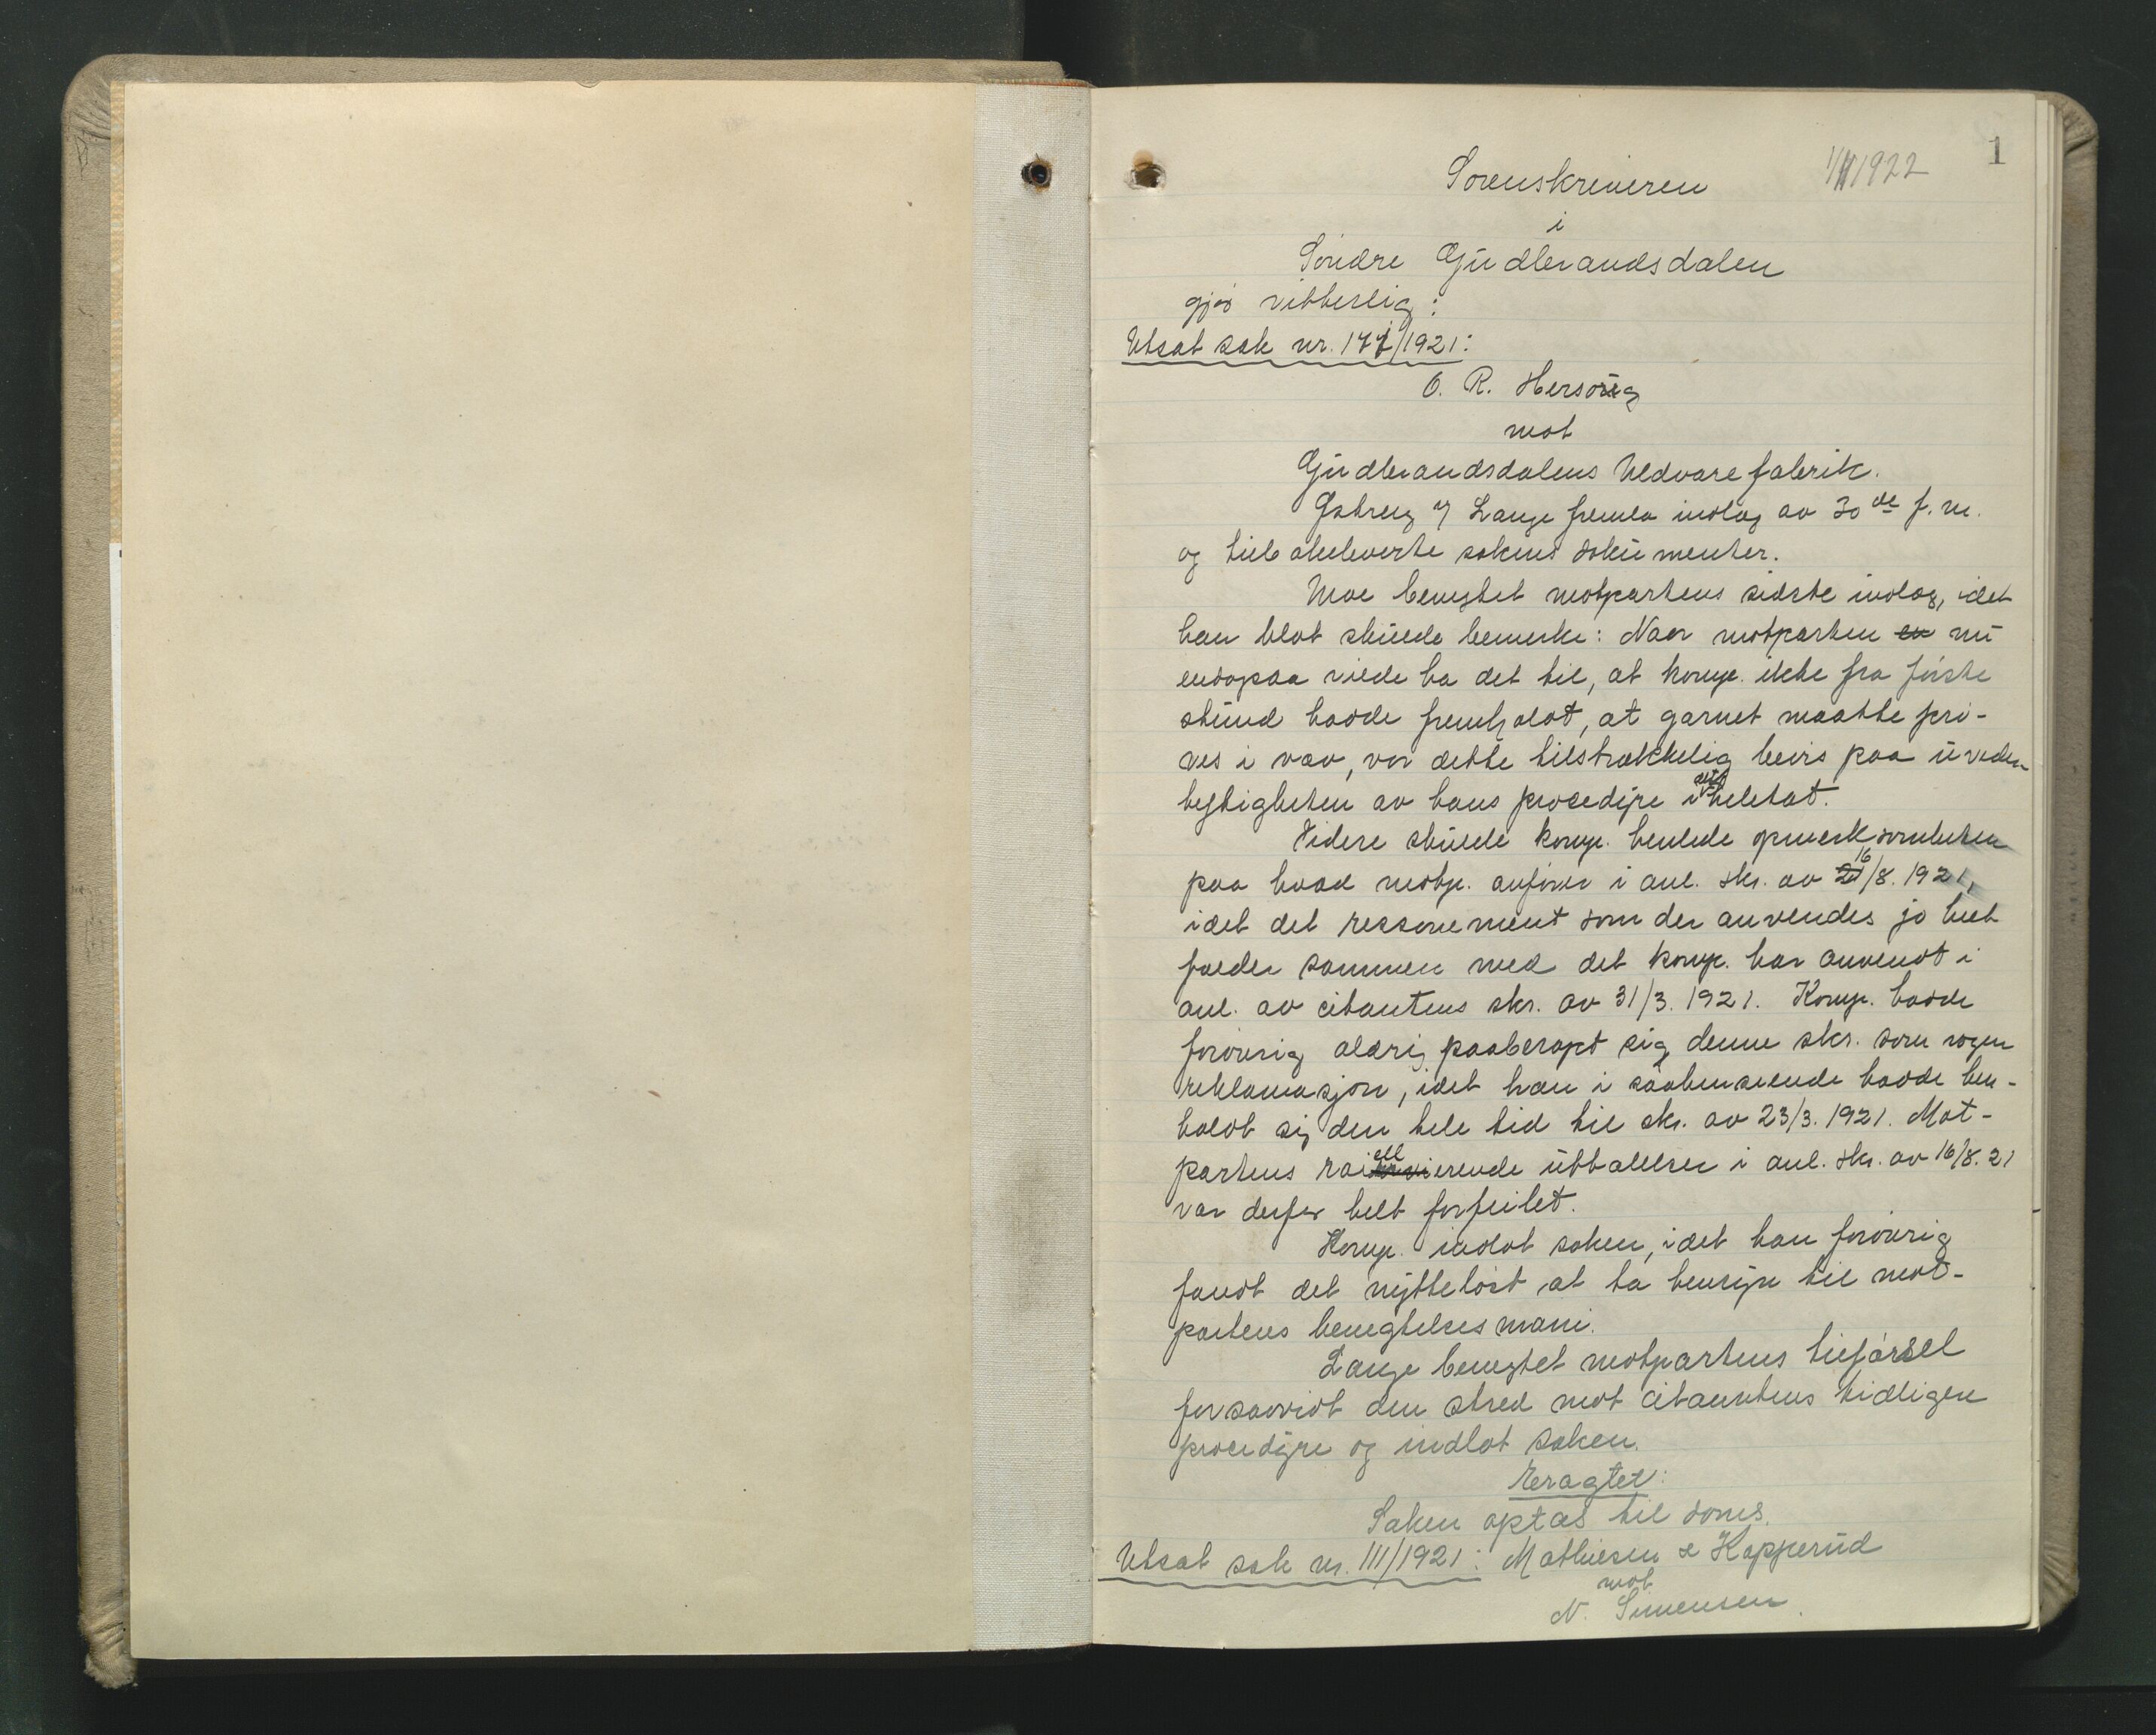 1
1/11 1922
Sorenskriveren
i
Søndre Gudbrandsdalen
gjør vitterlig:
Utsat sak nr. 177/1921:
O. R. Hersoug
mot
Gudbrandsdalens Uldvarefabrik.
Lange fremla indlæg av 30de f. m.
og tilbakeleverte sakens dokumenter.
Moe benegtet motpartens sidste indlæg, idet
han blot skulde bemerke: Naar motparten en nu
endogsaa vilde ha det til, at komp. ikke fra første
stund hadde fremholdt, at garnet maatte prø-
ves i væv, var dette tilstrækkelig bevis paa uveder-
heftigheten av hans procedyre i det heletat.
Videre skulde komp. henlede opmerksomheten
paa hvad motp. anfører i anl. skr. av 16/8. 1921,
idet det ressonement som der anvendes jo helt
falder sammen med det komp. har anvendt i
anl. av citantens skr. av 31/3. 1921. Komp. hadde
forøvrig aldrig paaberopt sig denne skr. som nogen
reklamasjon, idet han i saahenseende hadde hen-
holdt sig den hele tid til skr. av 23/3. 1921. Mot-
partens raillerende uttalelser i anl. skr. av 16/8. 21
var derfor helt forfeilet.
Komp. indlot saken, idet han forøvrig
fandt det nytteløst at ta hensyn til mot-
partens benegtelsesmani.
Lange benegtet motpartens tilførsel
forsaavidt den stred mot citantens tidligere
procedyre og indlot saken.
Eragtet:
Saken optas til doms.
Utsat sak nr. 111/1921: Mathiesen & Kopperud
mot
N. Simensen.